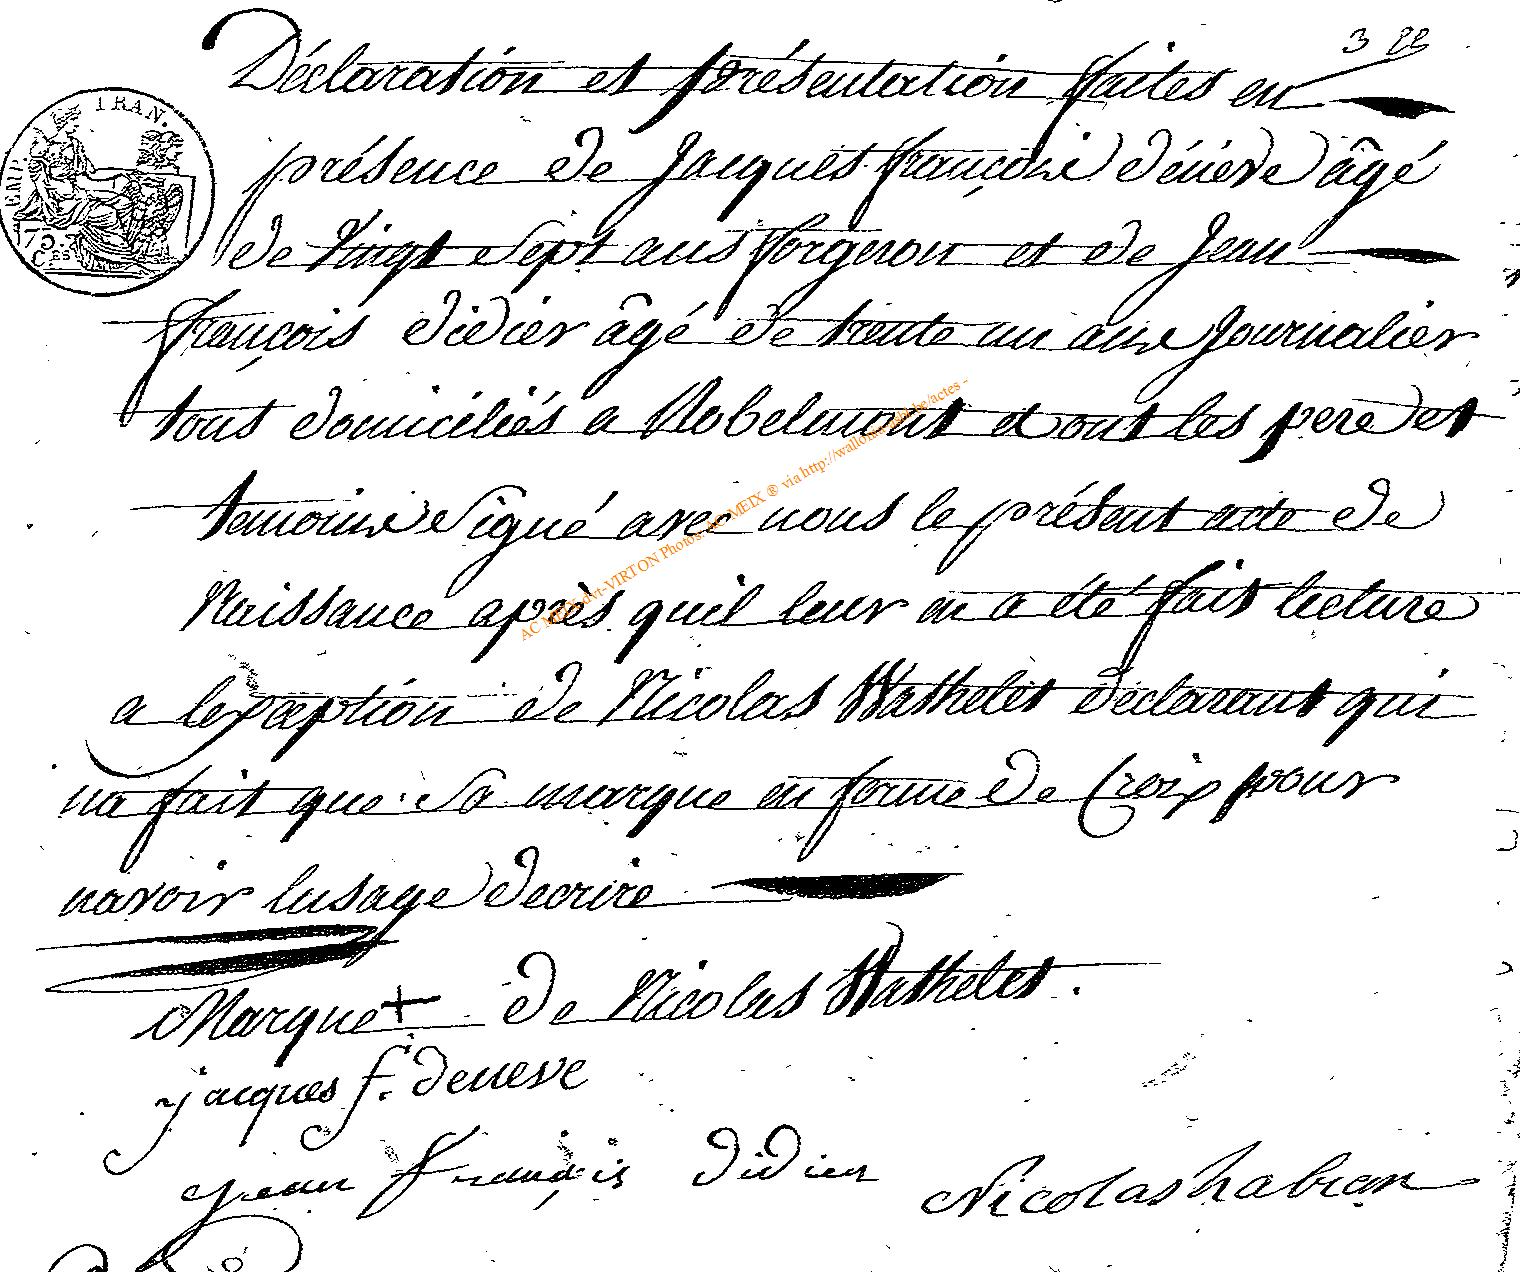 3 22
Déclaration et présentation faites en
EMP. FRAN.
présence de Jacques françois dénève âgé
75.
CES
de Vingt Sept ans forgeron et de Jean
françois didier âgé de trente un ans Journalier
tous domiciliés a Robelmont dont les pere et
temoins Signé avec nous le présent acte de
Naissance après quil leur en a été fait lecture
a lexception de Nicolas Wathelet déclarant qui
na fait que Sa marque en forme de Croix pour
navoir lusage decrire
Marque + de Nicolas Wathelet.
jacques f. deneve
jean françois didier
Nicolas habran
AC MEIX-dvt-VIRTON Photos: AC MEIX ® via http://wallonia-habt.be/actes -